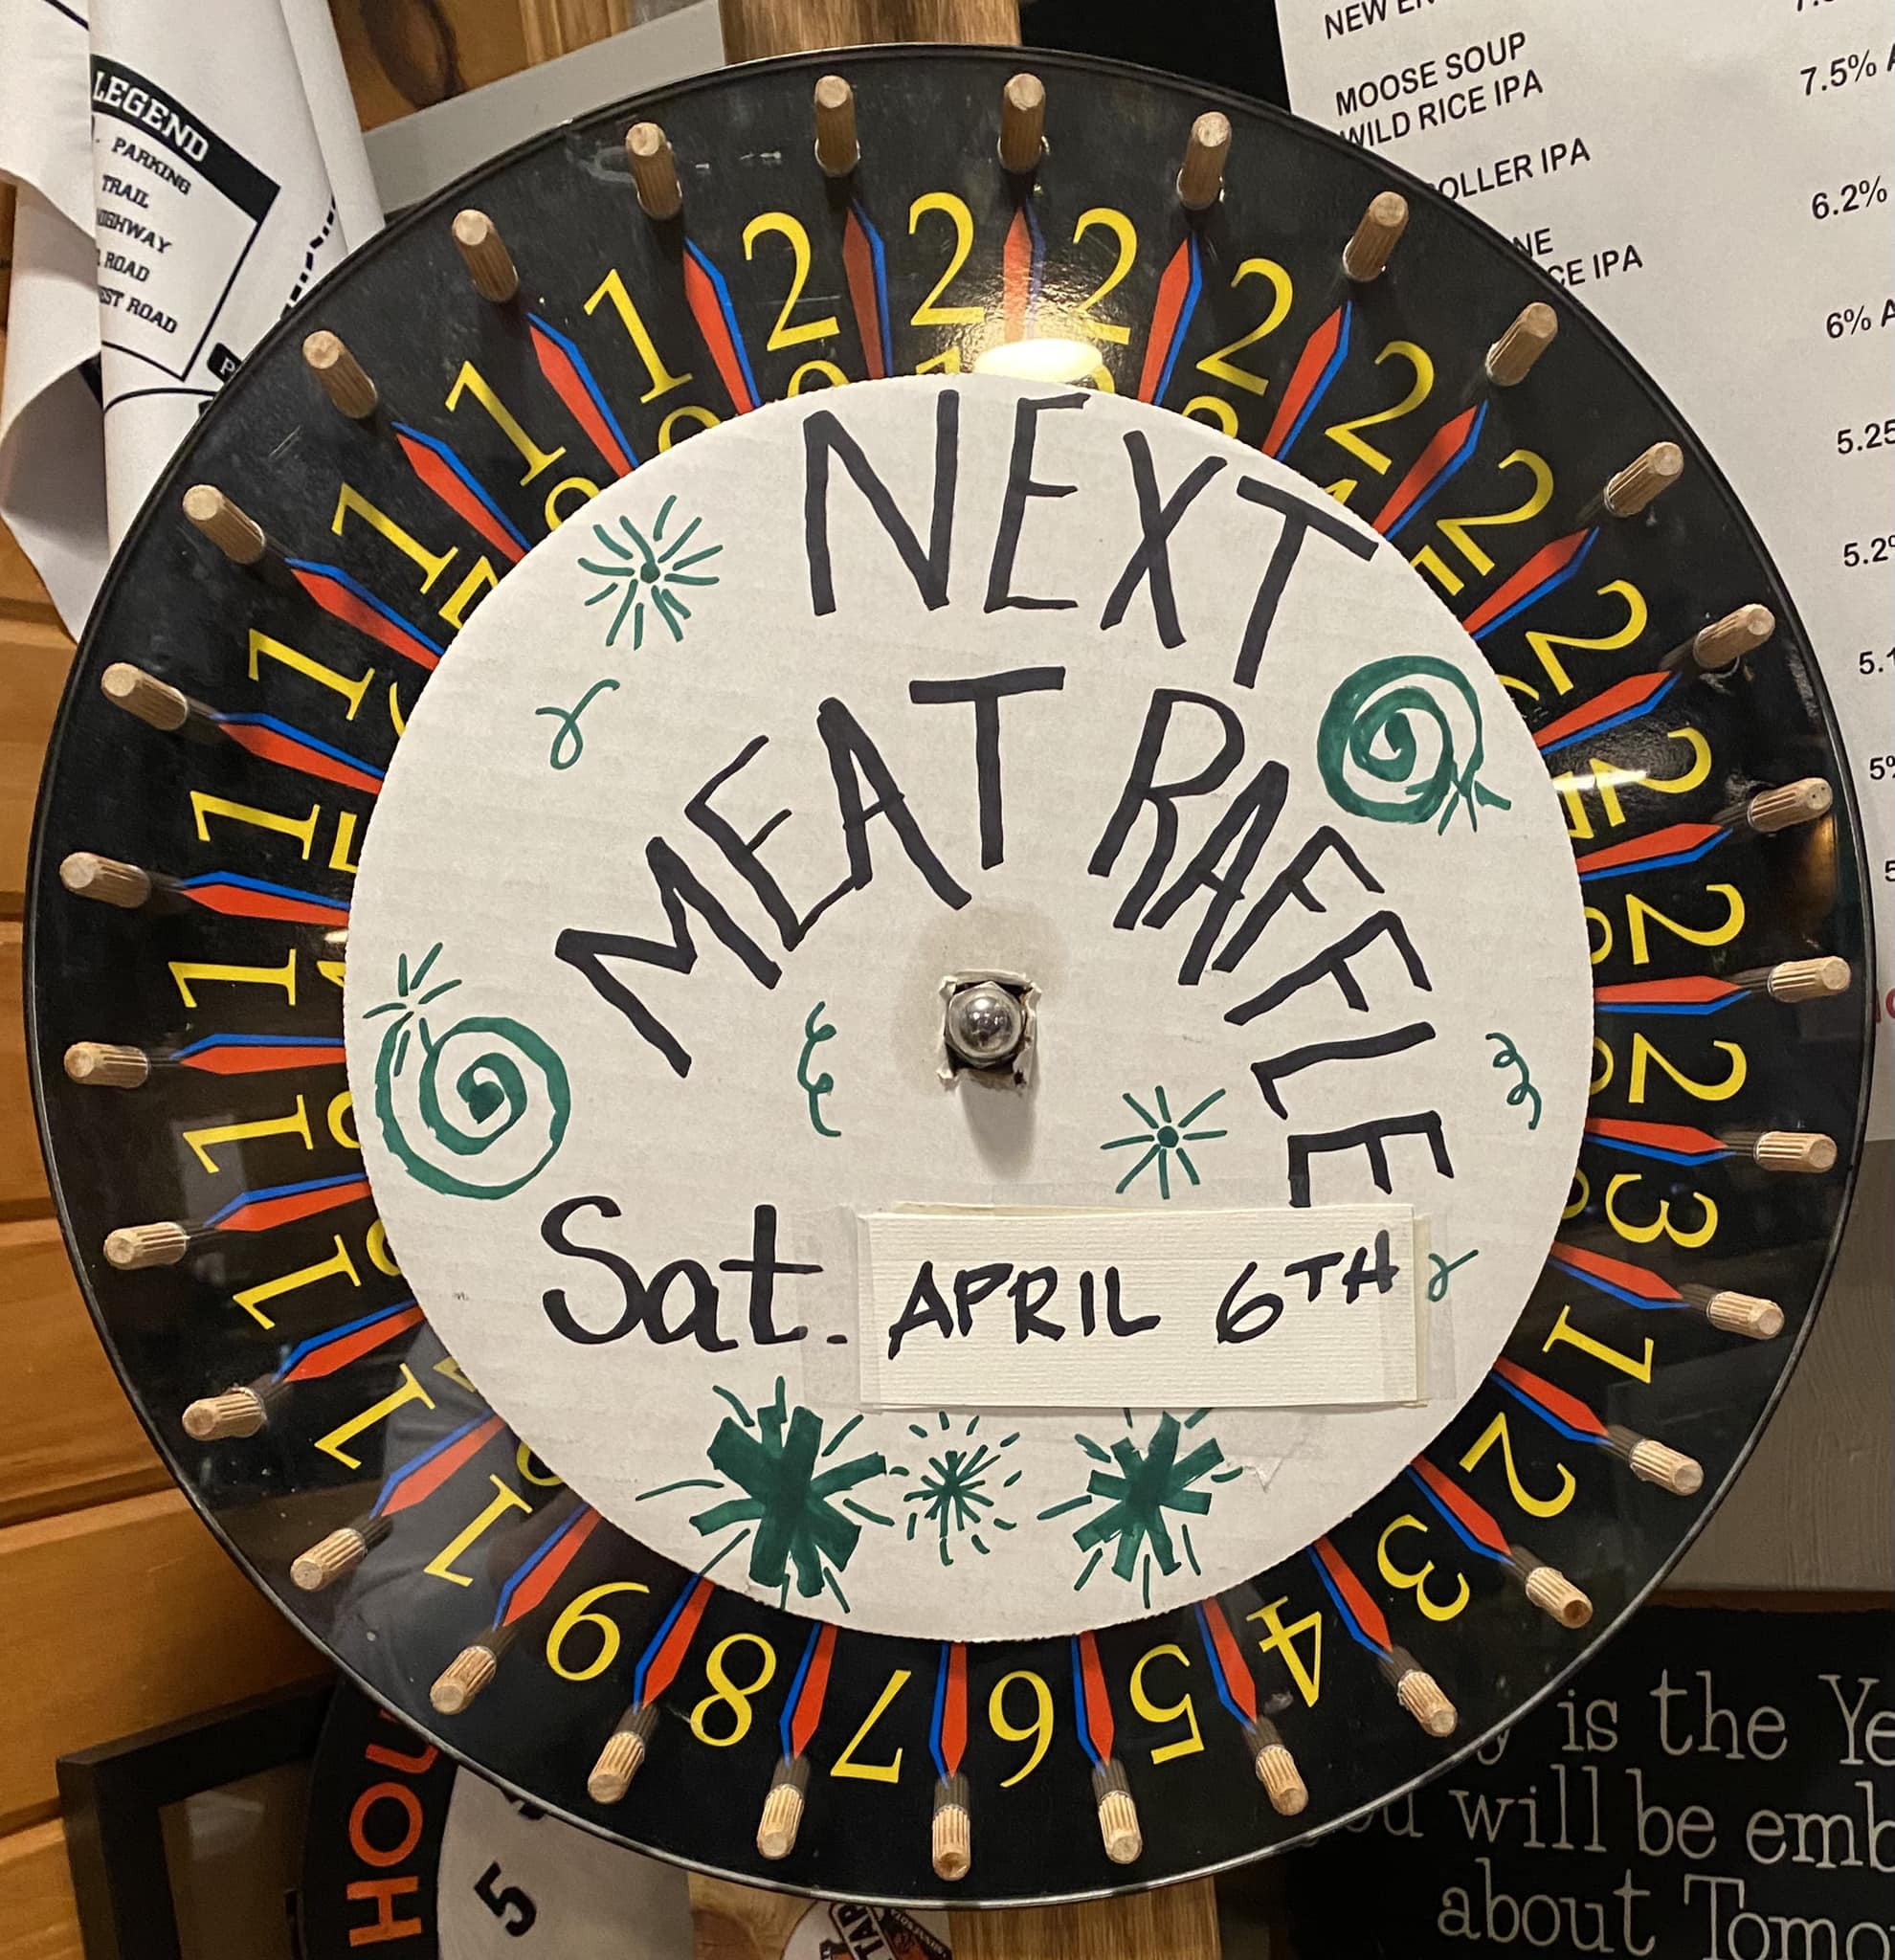 LEGEND
PARKING
TRAIL
HIGHWAY
ROAD
EST ROAD
MOOSE SOUP
WILD RICE IPA
7.5%
OLLER IPA
6.2%
NE
CE IPA
6%
5.25
5.2
5.1
5%
NEXT
MEAT RAFFLE
Sat. APRIL 6TH
2
2
2
2
2
2
2
2
2
2
3
1
2
3
4
5
6
7
8
9
1
1
1
1
1
1
1
1
1
1
HOU
5
TAP
is the Ye
will be emb
about Tomo